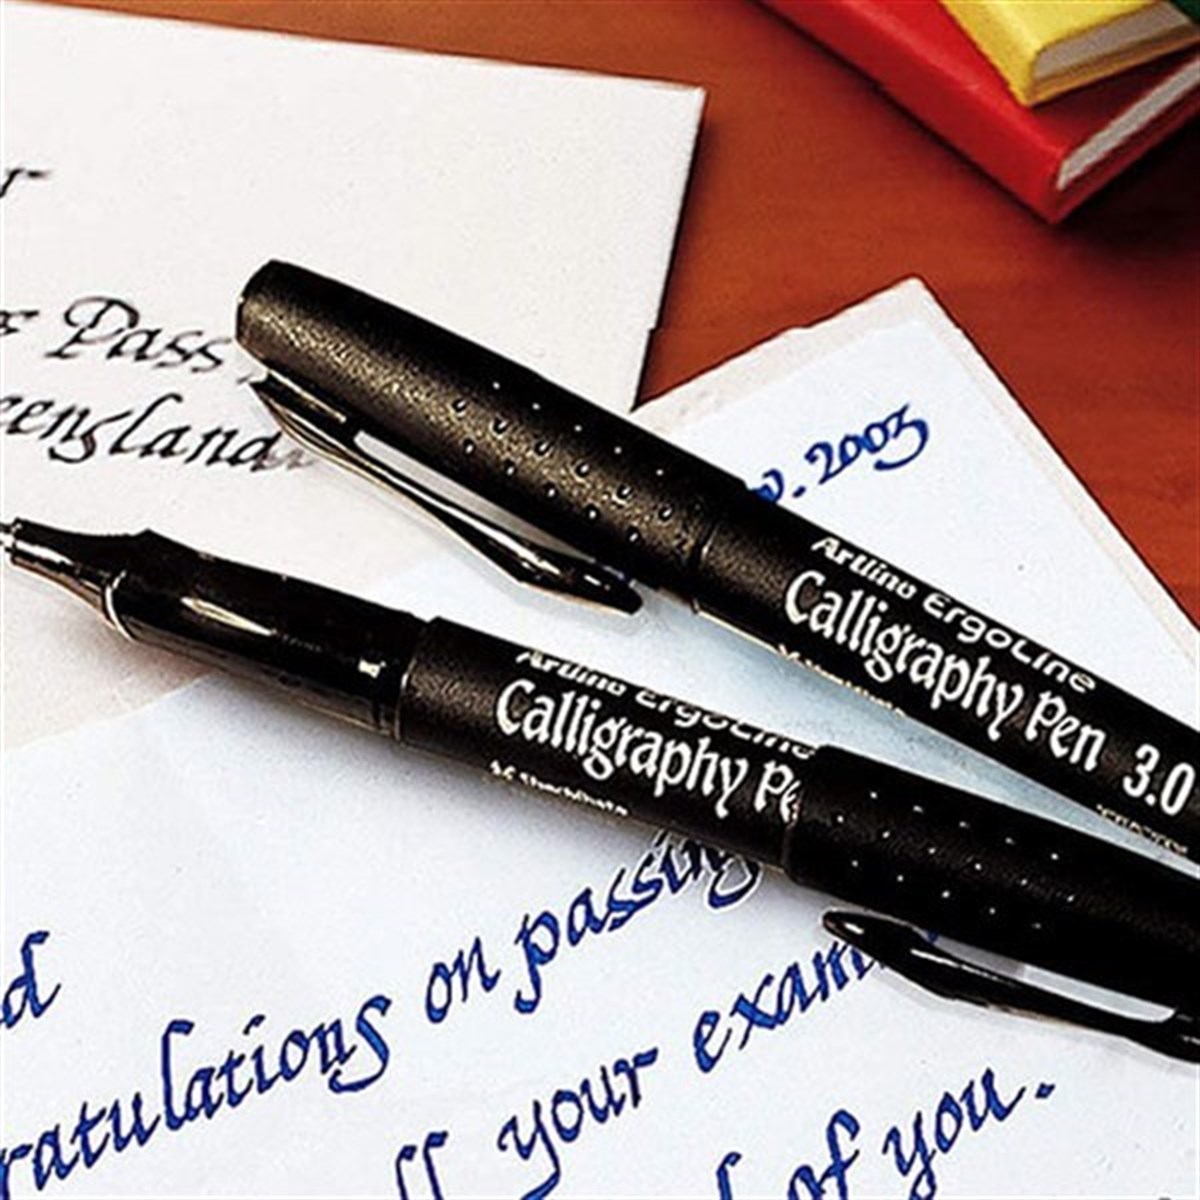 Pass
eengland
2003
Artline ErgoLine
Calligraphy Pen 3.0
Artline ErgoLine
Calligraphy Pe
d
ratulations on passing
ll your exam
of you.